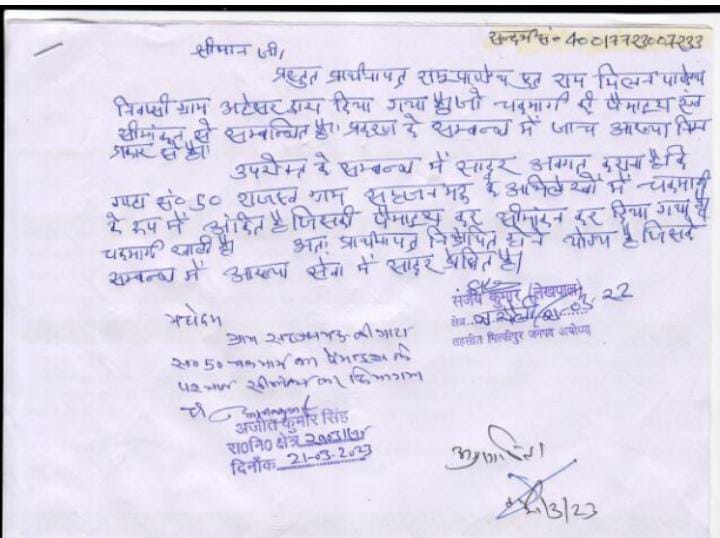 सन्दर्भ सं० 40017723007233
श्रीमान जी,
प्रस्तुत प्रार्थनापत्र राम पाण्डेय पुत्र राम मिलन पाण्डेय
निवासी ग्राम अटेसर द्वारा दिया गया है। जो चकमार्ग की पैमाइश एवं
सीमांकन से सम्बन्धित है। प्रकरण के सम्बन्ध में जांच आख्या निम्न
प्रकार से है।
उपरोक्त के सम्बन्ध में सादर अवगत कराना है कि
गाटा सं० 50 राजस्व ग्राम के अभिलेखों में चकमार्ग
के रूप में अंकित है जिसकी पैमाइश कर सीमांकन कर दिया गया है
चकमार्ग खाली है। अतः प्रार्थनापत्र निक्षेपित होने योग्य है जिसके
सम्बन्ध में आख्या सेवा में सादर प्रेषित है।
संजय कुमार (लेखपाल)
क्षेत्र
तहसील मिल्कीपुर जनपद अयोध्या
महोदय
ग्राम की गाटा
स० 50 चकमार्ग का पैमाइश की
किया गया
है
अजीत कुमार सिंह
रा०नि० क्षेत्र
दिनाँक 21-03-2023
3/23